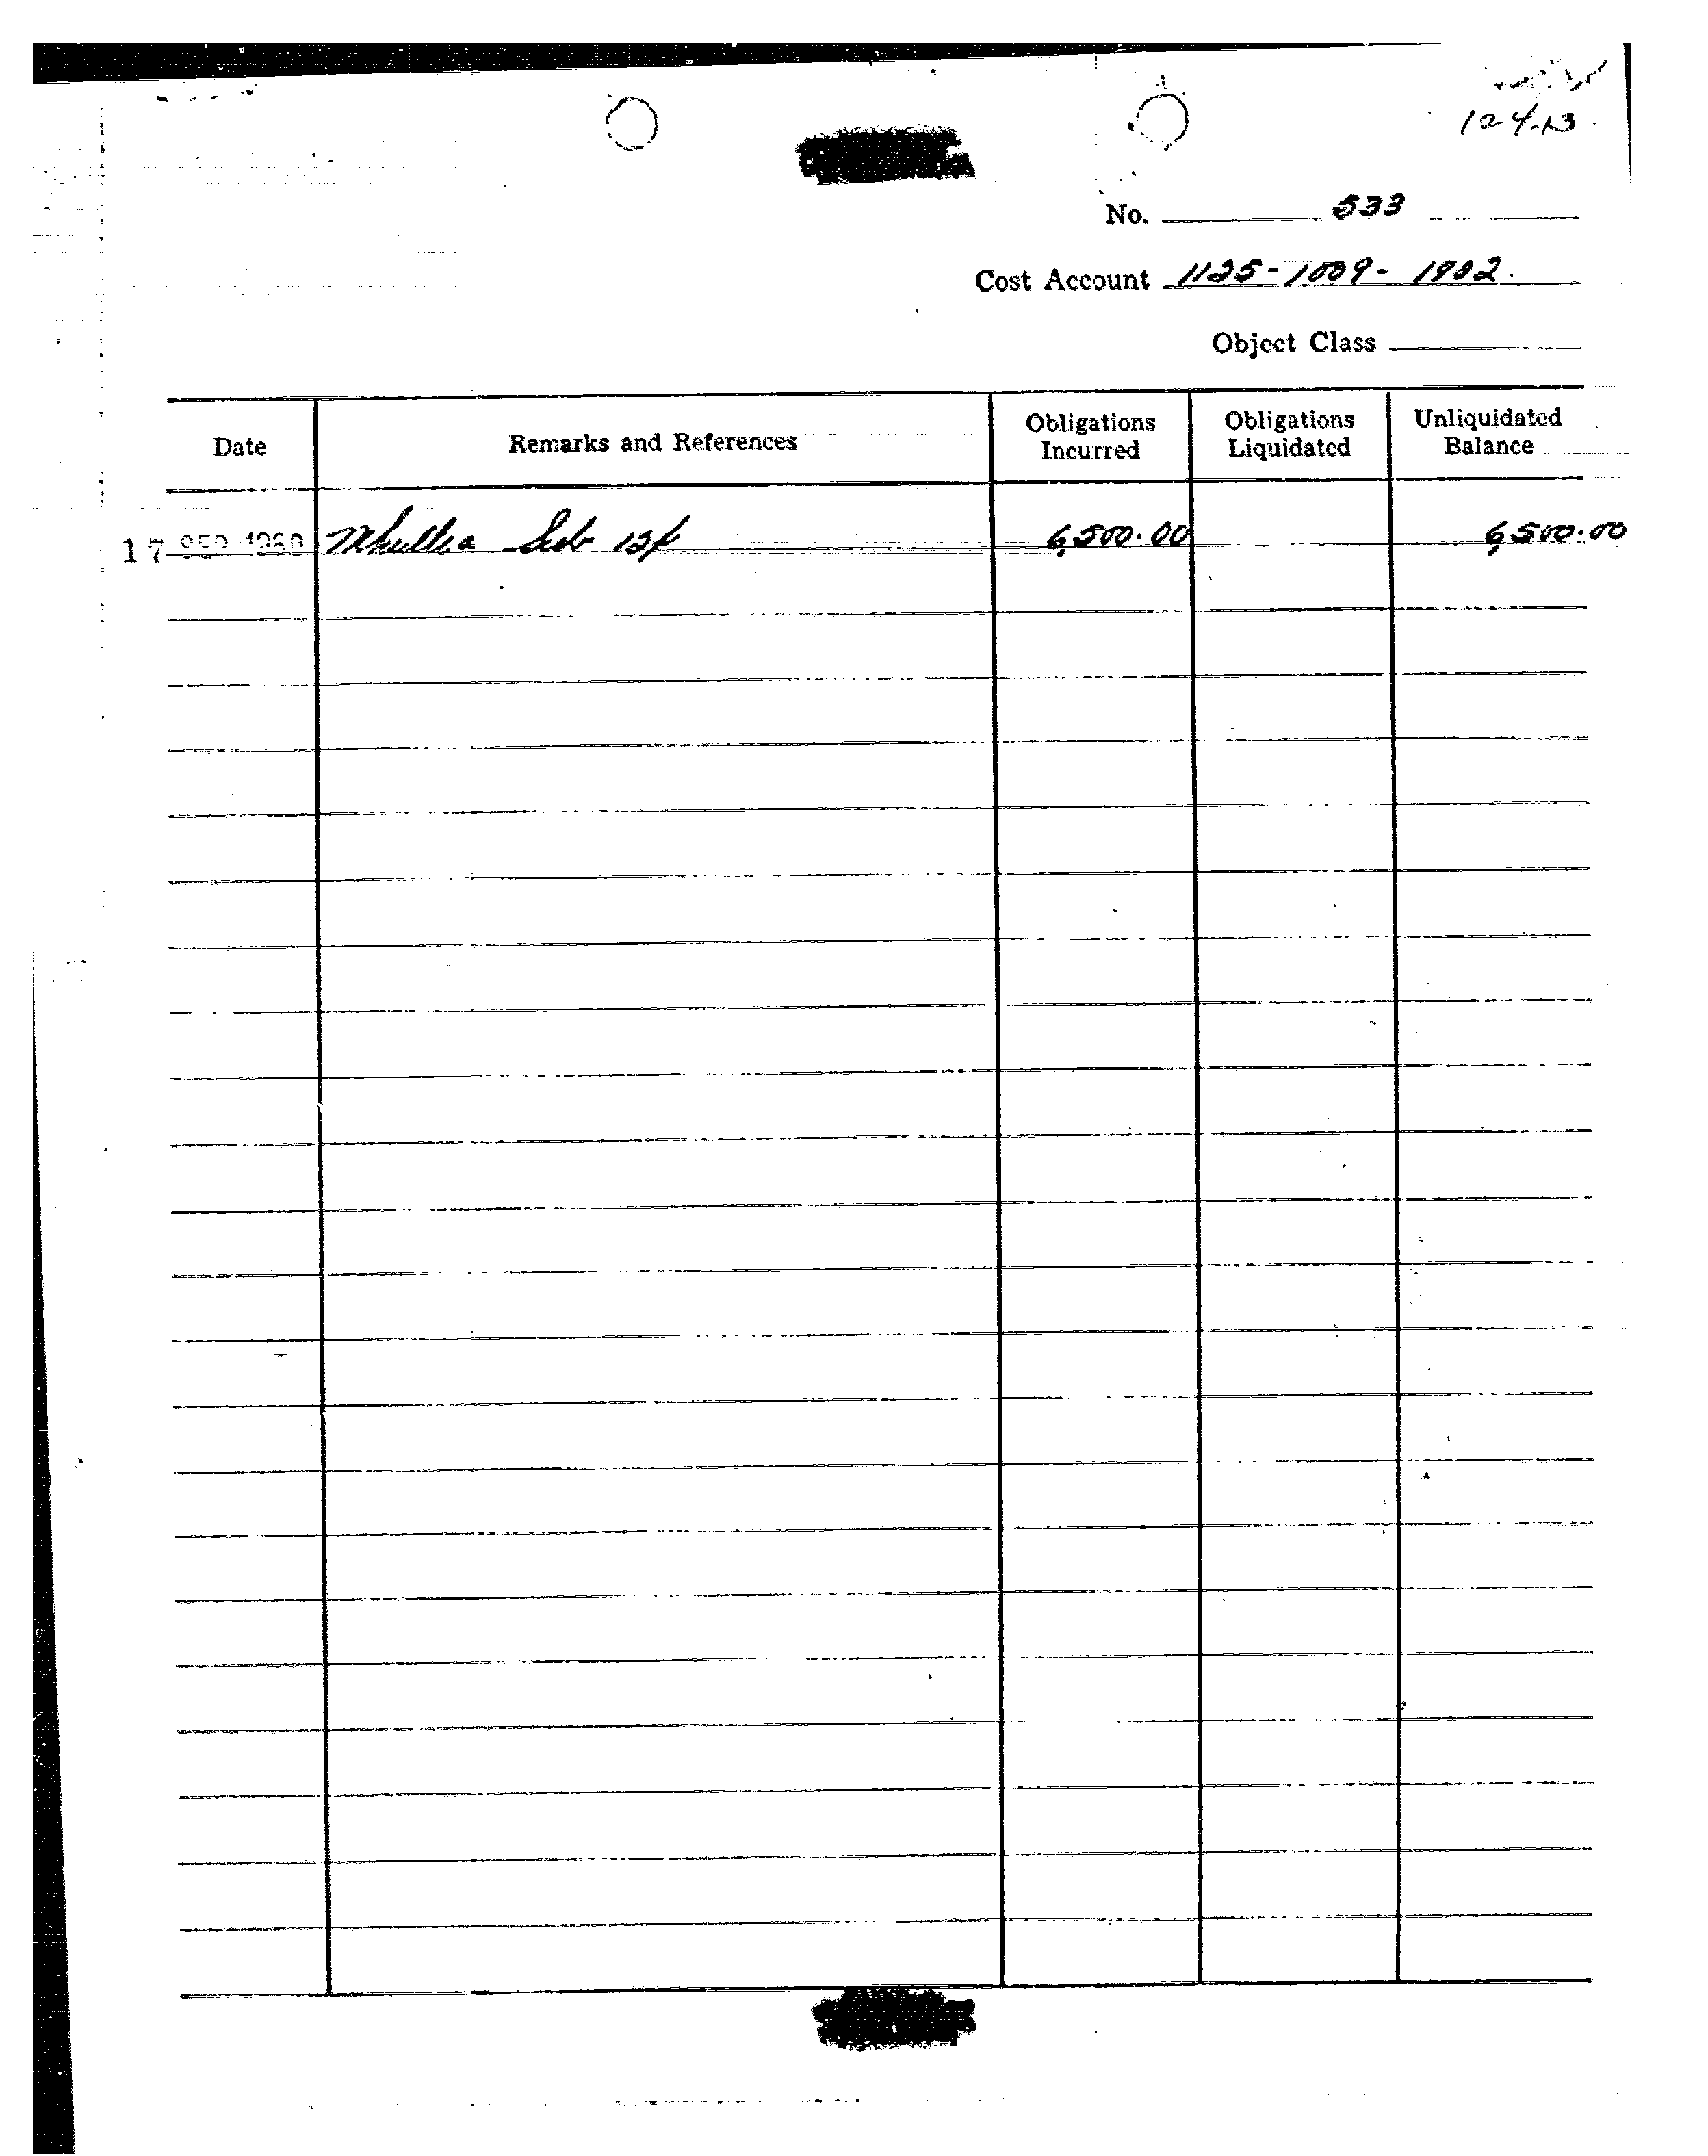 124-13
No. 533
Cost Account 1125-1009-1902
Object Class
Date Remarks and References Obligations Incurred Obligations Liquidated Unliquidated Balance
17 SEP 1960 Mkultra Sub 124 6,500.00 6,500.00